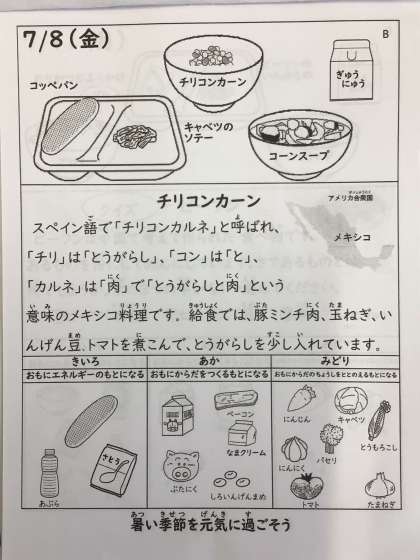 7/8(金)
B
チリコンカーン
ぎゅう
にゅう
コッペパン
キャベツの
ソテー
コーンスープ
チリコンカーン
アメリカ合衆国
メキシコ
スペイン語で「チリコンカルネ」と呼ばれ、
「チリ」は「とうがらし」、「コン」は「と」、
「カルネ」は「肉」で「とうがらしと肉」という
意味のメキシコ料理です。給食では、豚ミンチ肉、玉ねぎ、い
んげん豆、トマトを煮こんで、とうがらしを少し入れています。
きいろ
あか
みどり
おもにエネルギーのもとになる
おもにからだをつくるもとになる
おもにからだのちょうしをととのえるもとになる
さとう
あぶら
ベーコン
なまクリーム
ぶたにく
しろいんげんまめ
にんじん
キャベツ
とうもろこし
パセリ
にんにく
トマト
たまねぎ
暑い季節を元気に過ごそう